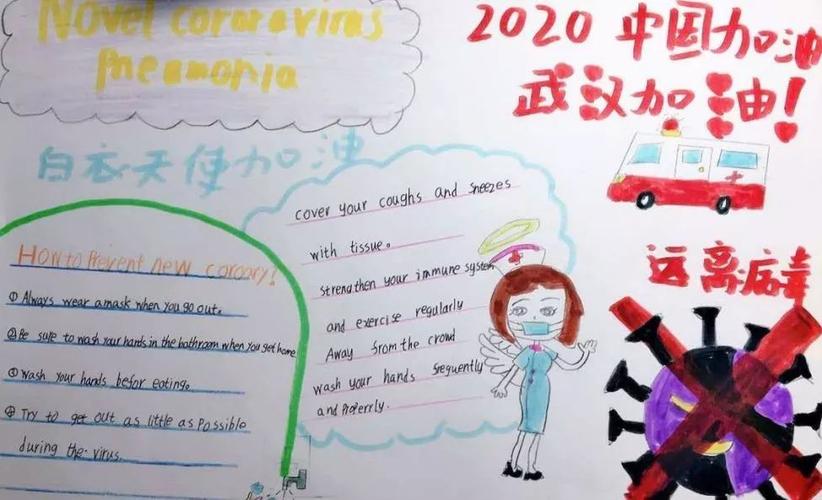 Novel cororavirus
Pneamonia
2020 中国加油
武汉加油!
白衣天使加油
How to Prevent new coroary!
① Always wear a mask when you go out.
② Be sure to wash your hands in the bathroom when you get home
③ wash your hands befor eating.
④ Try to get out as little as Possible
during the virus.
cover your coughs and sneezes
with tissue.
strengthen your immune system
and exercise regularly
Away from the crowd
wash your hands freguently
and Properrly.
远离病毒